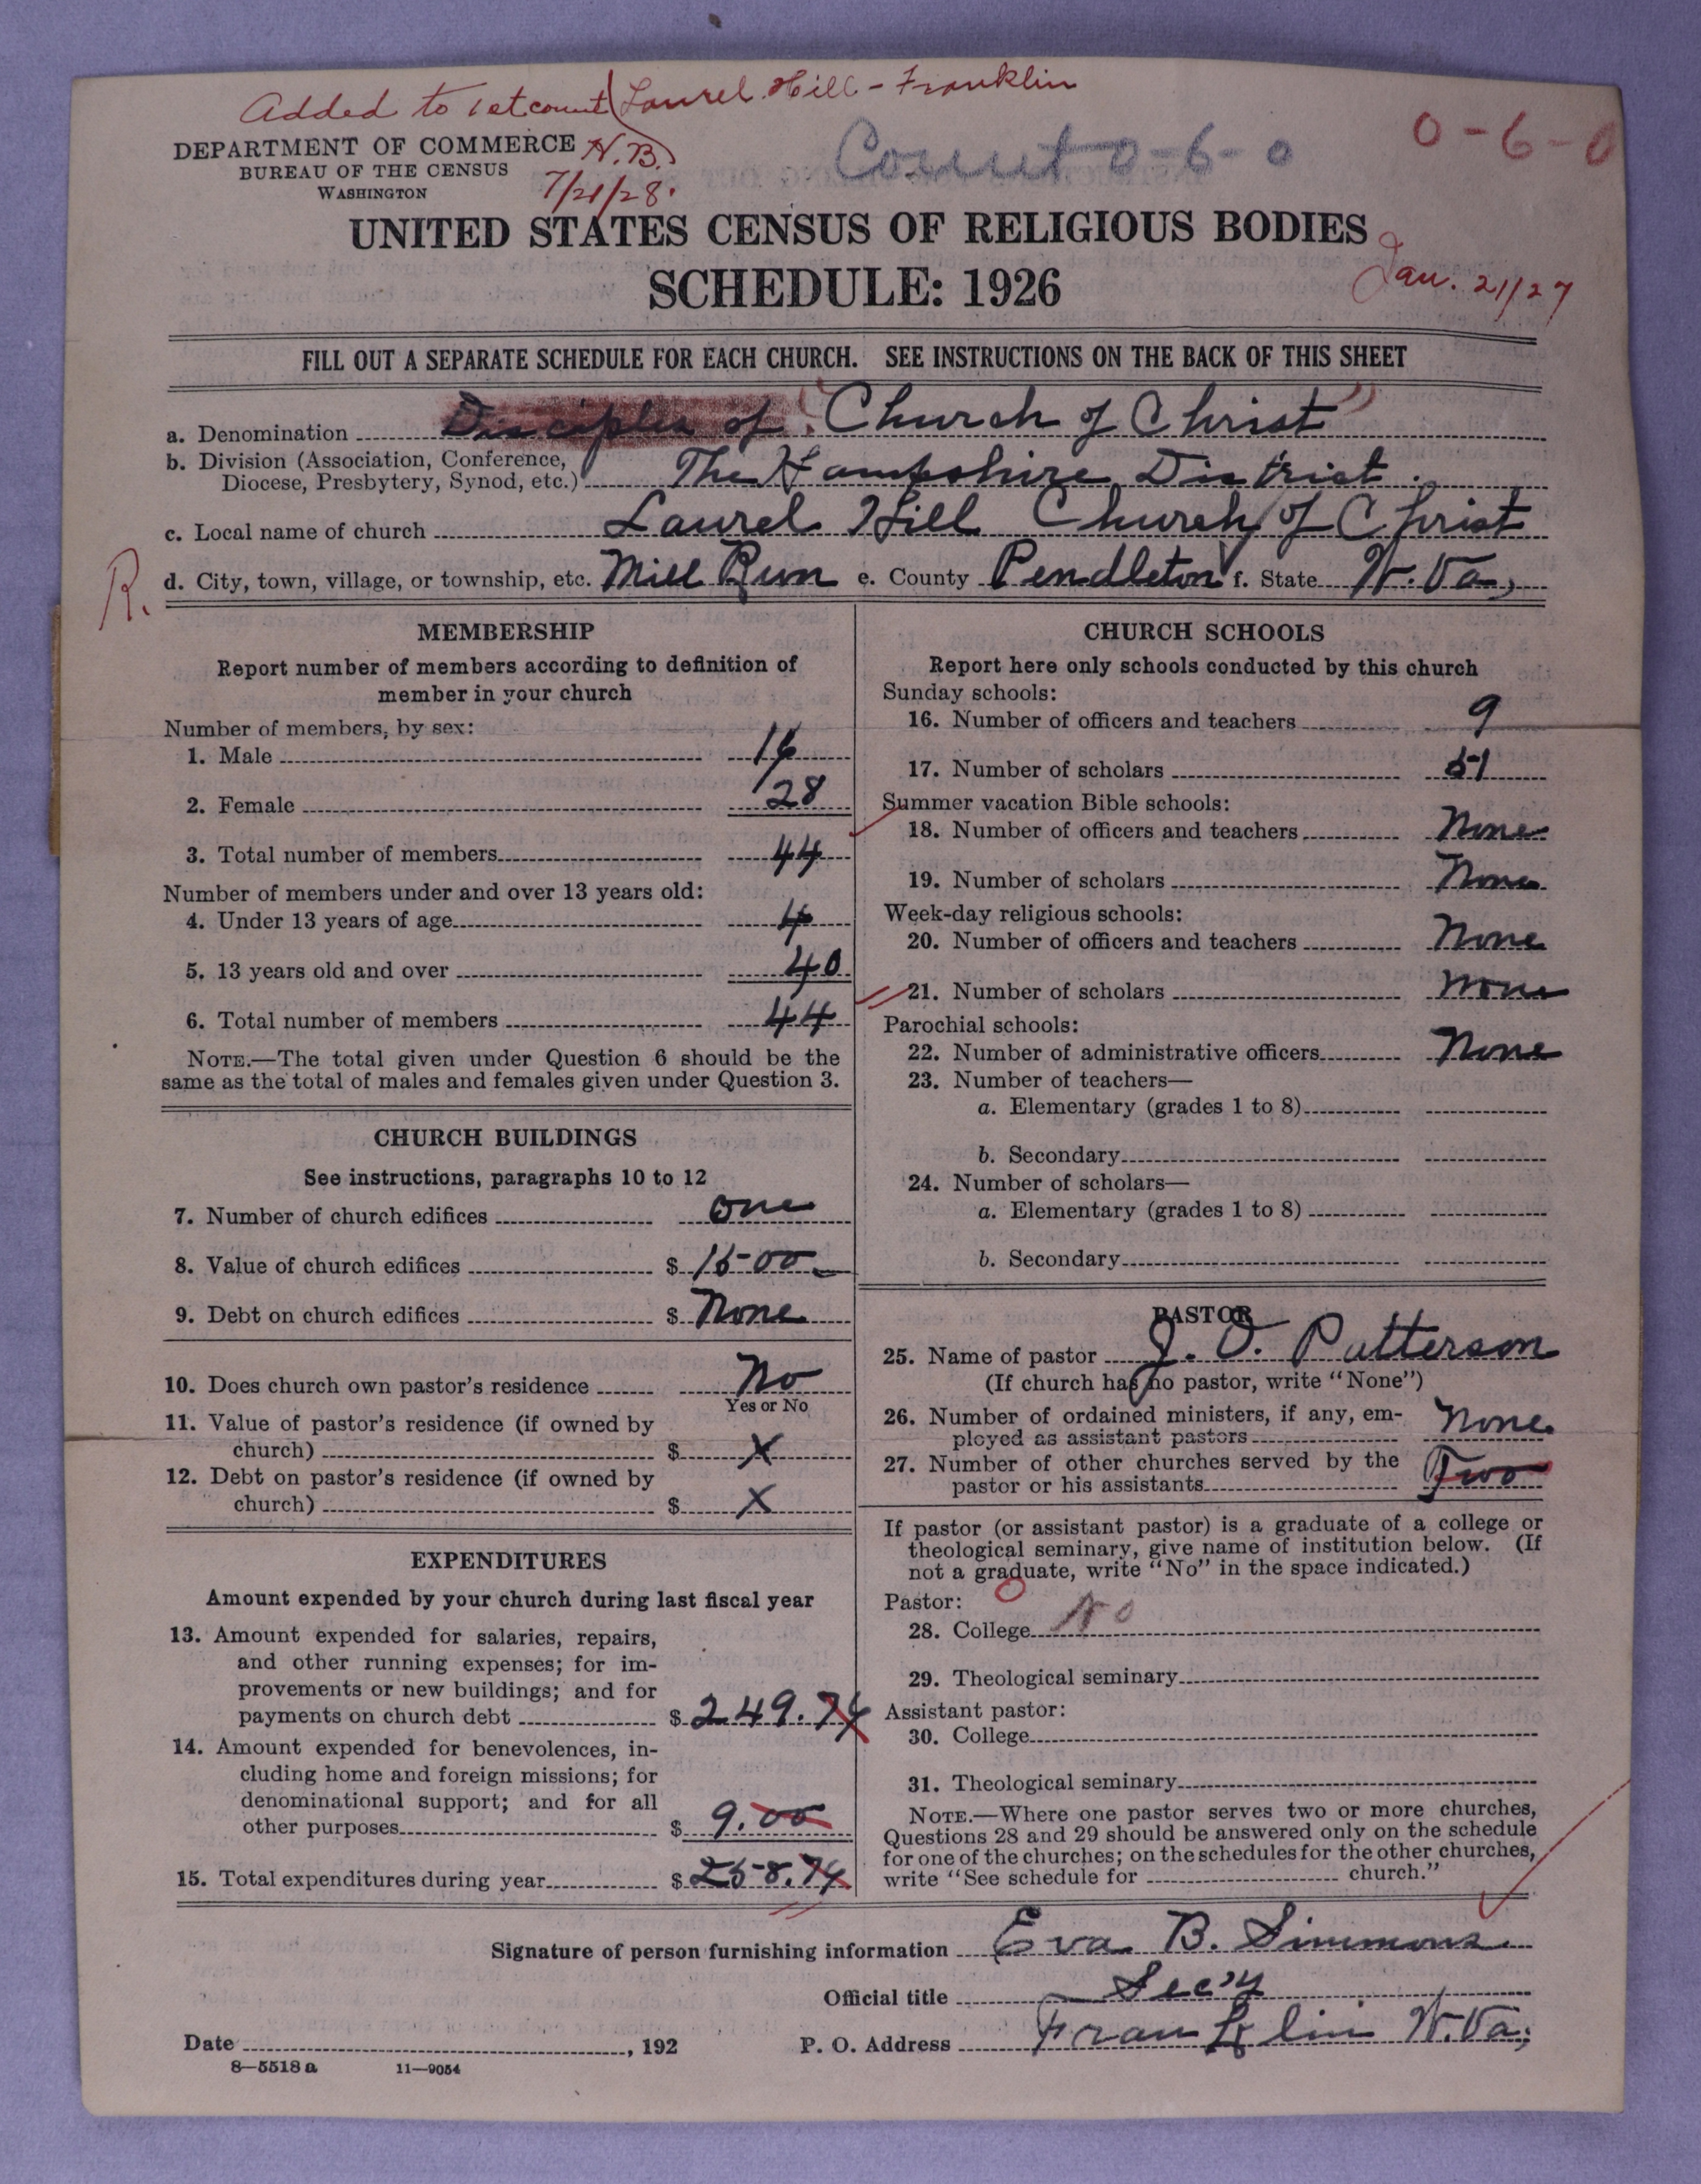 Added to 1st count Laurel Hill - Franklin
H.B.
7/21/28.
Count 0-6-0
0-6-0
DEPARTMENT OF COMMERCE
BUREAU OF THE CENSUS
WASHINGTON
UNITED STATES CENSUS OF RELIGIOUS BODIES
SCHEDULE: 1926
Jan. 21/27
FILL OUT A SEPARATE SCHEDULE FOR EACH CHURCH. SEE INSTRUCTIONS ON THE BACK OF THIS SHEET
a. Denomination Disciples of (Church of Christ)
b. Division (Association, Conference,
Diocese, Presbytery, Synod, etc.) The Hampshire District.
c. Local name of church Laurel Hill Church of Christ
R.
d. City, town, village, or township, etc. Mill Run e. County Pendleton f. State W. Va,
MEMBERSHIP
Report number of members according to definition of
member in your church
Number of members, by sex:
1. Male 16
2. Female 28
3. Total number of members 44
Number of members under and over 13 years old:
4. Under 13 years of age 4
5. 13 years old and over 40
6. Total number of members 44
NOTE.—The total given under Question 6 should be the
same as the total of males and females given under Question 3.
CHURCH BUILDINGS
See instructions, paragraphs 10 to 12
7. Number of church edifices one
8. Value of church edifices $ 1500
9. Debt on church edifices $ None
10. Does church own pastor's residence No
Yes or No
11. Value of pastor's residence (if owned by
church) $ X
12. Debt on pastor's residence (if owned by
church) $ X
EXPENDITURES
Amount expended by your church during last fiscal year
13. Amount expended for salaries, repairs,
and other running expenses; for im-
provements or new buildings; and for
payments on church debt $ 249.74
14. Amount expended for benevolences, in-
cluding home and foreign missions; for
denominational support; and for all
other purposes $ 9.00
15. Total expenditures during year $ 258.74
CHURCH SCHOOLS
Report here only schools conducted by this church
Sunday schools:
16. Number of officers and teachers 9
17. Number of scholars 51
Summer vacation Bible schools:
18. Number of officers and teachers None
19. Number of scholars None
Week-day religious schools:
20. Number of officers and teachers None
21. Number of scholars None
Parochial schools:
22. Number of administrative officers None
23. Number of teachers—
a. Elementary (grades 1 to 8)
b. Secondary
24. Number of scholars—
a. Elementary (grades 1 to 8)
b. Secondary
PASTOR
25. Name of pastor J. O. Patterson
(If church has no pastor, write "None")
26. Number of ordained ministers, if any, em-
ployed as assistant pastors None
27. Number of other churches served by the
pastor or his assistants Two
If pastor (or assistant pastor) is a graduate of a college or
theological seminary, give name of institution below. (If
not a graduate, write "No" in the space indicated.)
Pastor:
28. College No
29. Theological seminary
Assistant pastor:
30. College
31. Theological seminary
NOTE.—Where one pastor serves two or more churches,
Questions 28 and 29 should be answered only on the schedule
for one of the churches; on the schedules for the other churches,
write "See schedule for church."
Signature of person furnishing information Eva B. Simmons
Official title Sec'y
Date , 192 P. O. Address Franklin W. Va;
8—5518 a 11—9054